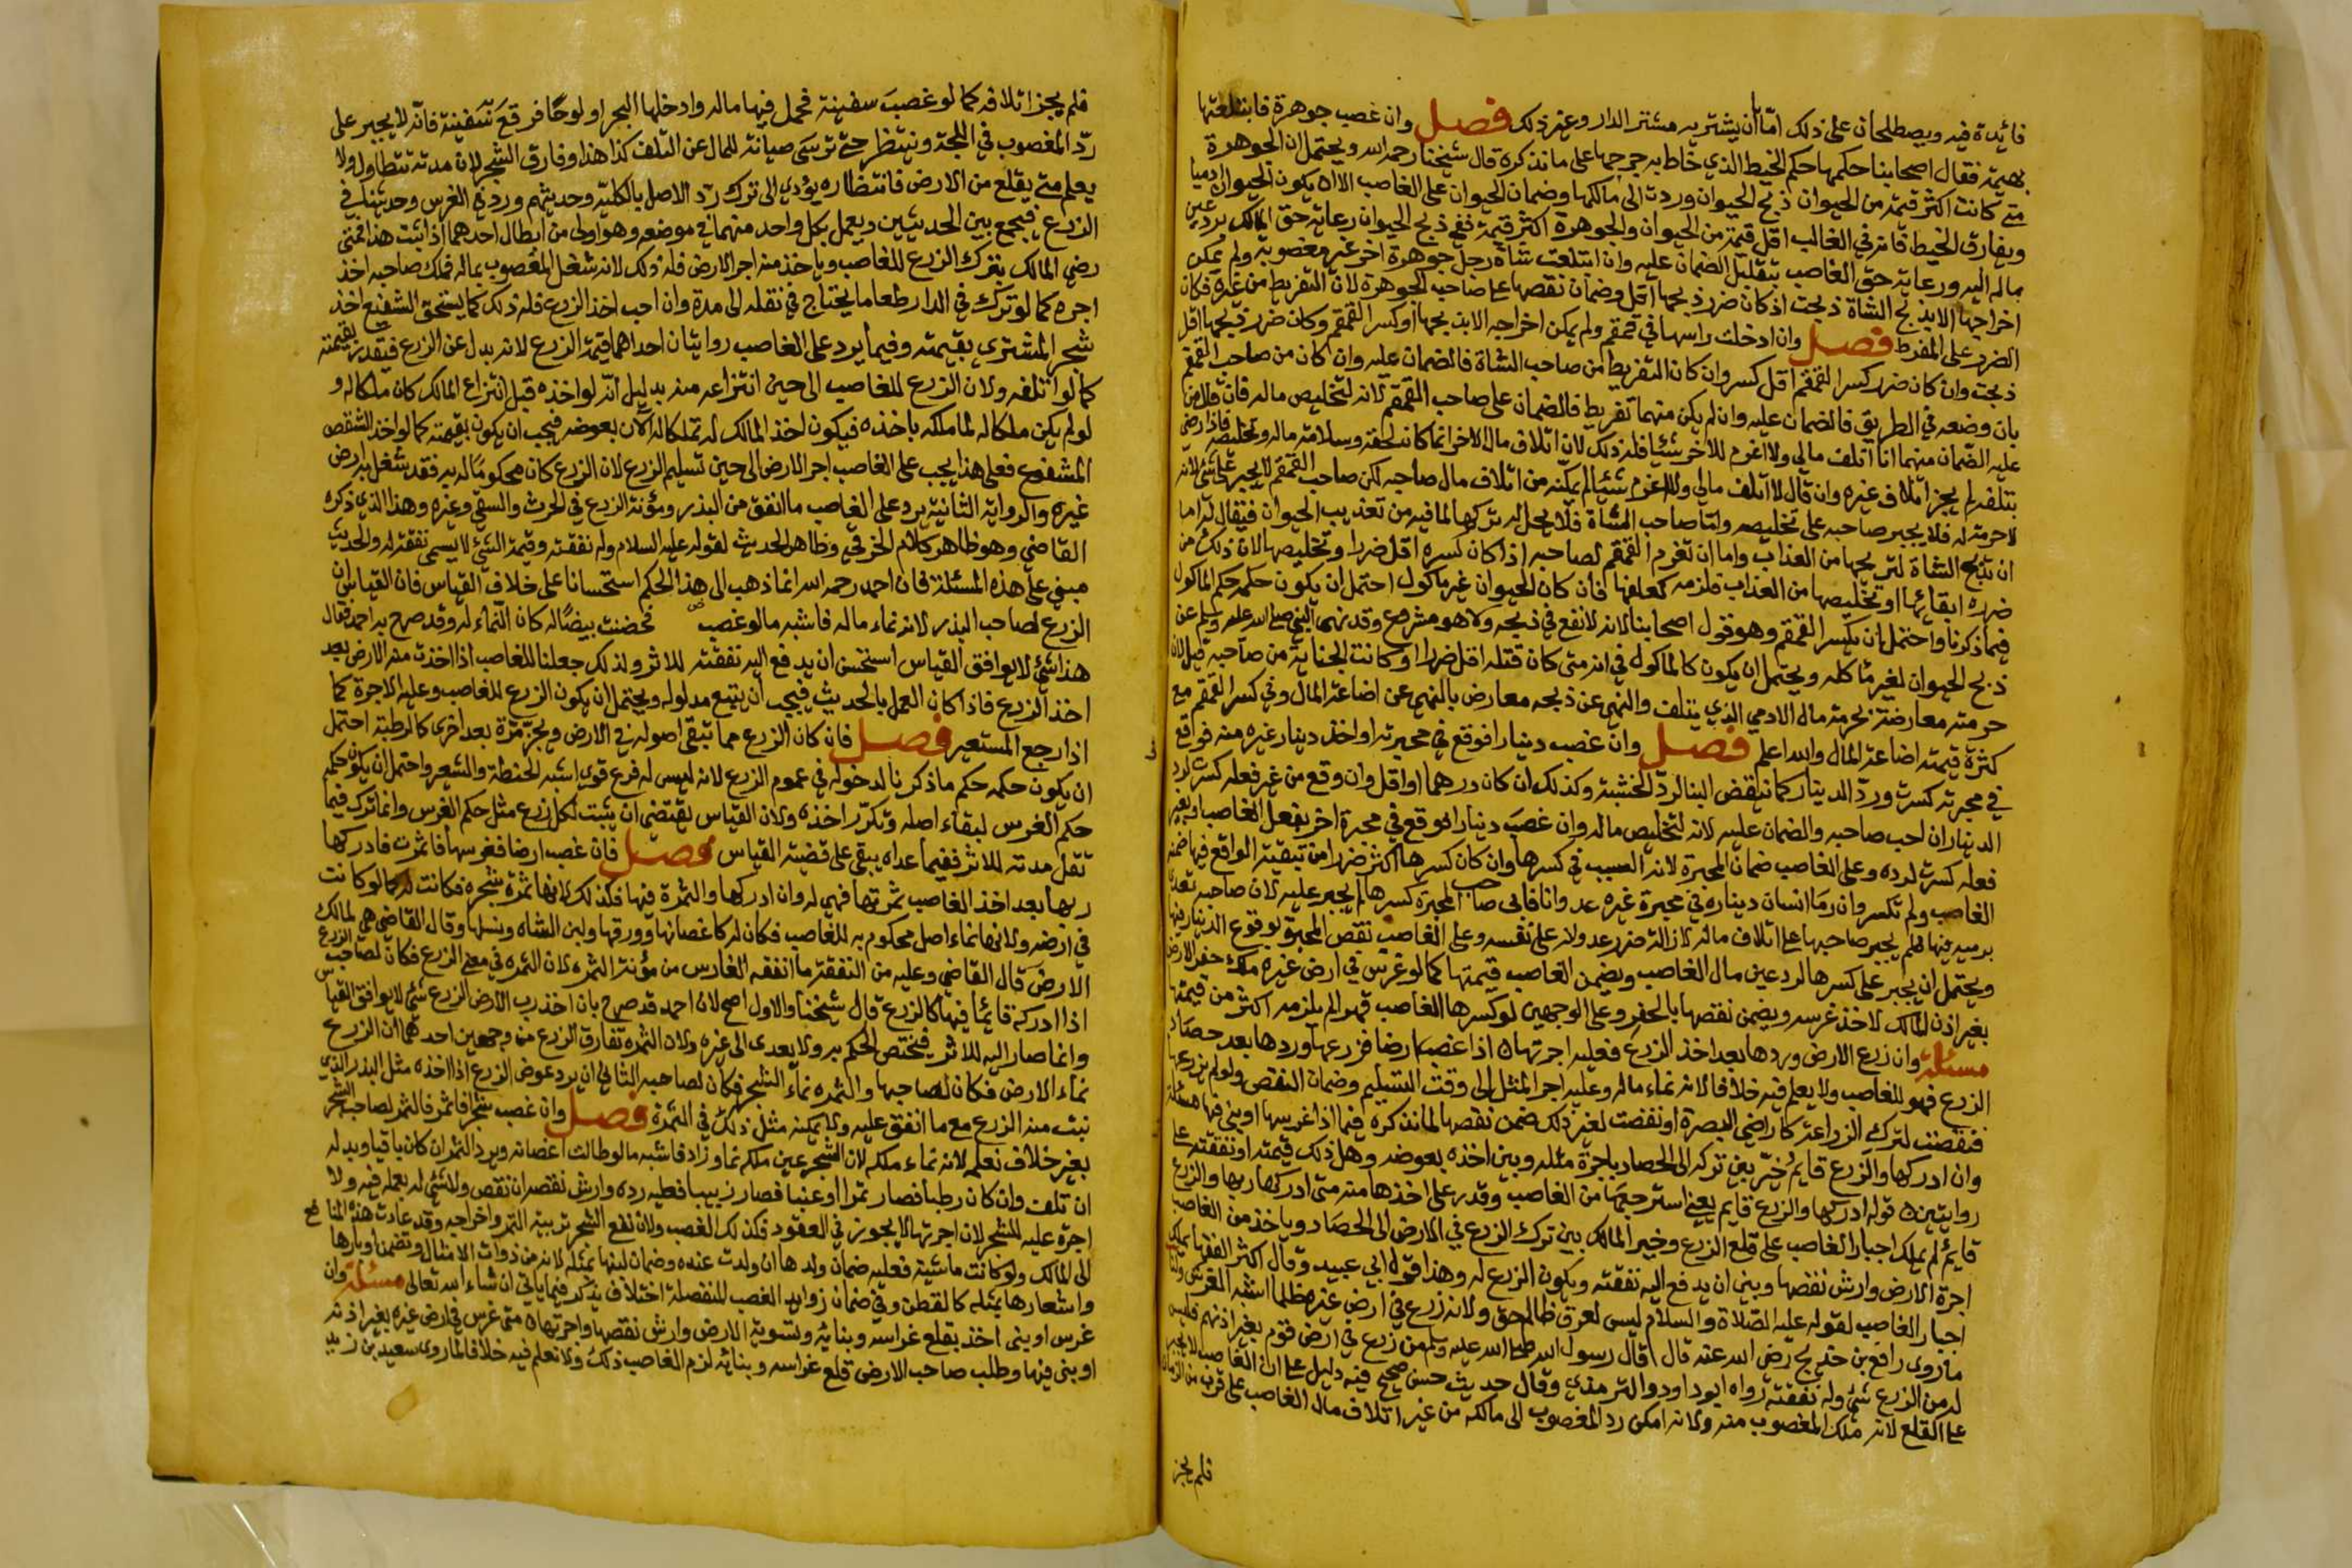 فائدة فيه ويصطلحان على ذلك امّا ان يشتريه مشتر الدار وغير ذلك فصل وان غصب جوهرة فابتلعتها
بهيمة فقال اصحابنا حكمها حكم الخيط الذي خاط به جرحها على ما نذكره قال شيخنا رحمه الله ويحتمل ان الجوهرة
متى كانت اكثر قيمة من الحيوان ذبح الحيوان وردت الى مالكها وضمان الحيوان على الغاصب الا ان يكون الحيوان ادميا
ويفارق الخيط فانه في الغالب اقل قيمة من الحيوان والجوهرة اكثر قيمة ففي ذبح الحيوان رعاية حق المالك برد عين
ماله اليه ورعاية حق الغاصب بتقليل الضمان عليه وان ابتلعت شاة رجل جوهرة اخر غير مغصوبة ولم يمكن
اخراجها الا بذبح الشاة ذبحت اذ كان ضرر ذبحها اقل وضمان نقصها على صاحب الجوهرة لان التفريط من غيره فكان
الضرر على المفرط فصل وان ادخلت راسها في قمقم ولم يمكن اخراجه الا بذبحها او كسر القمقم وكان ضرر ذبحها اقل
ذبحت وان كان ضرر كسر القمقم اقل كسر وان كان التفريط من صاحب الشاة فالضمان عليه وان كان من صاحب القمقم
بان وضعه في الطريق فالضمان عليه وان لم يكن منهما تفريط فالضمان على صاحب القمقم لانه لتخليص ماله فان قال من
عليه الضمان منهما انا اتلف مالي ولا اغرم للاخر شيئا فله ذلك لان اتلاف مال الاخر انما كان لحقه وسلامة ماله وتخليصه فاذا رضي
بتلفه لم يجز اتلاف غيره وان قال لا اتلف مالي ولا اغرم شيئا لم يمكنه من اتلاف مال صاحبه لكن صاحب القمقم لا يجبر على شئ لانه
لا حرمة له فلا يجبر صاحبه على تخليصه واما صاحب الشاة فلا يحل له تركها لما فيه من تعذيب الحيوان فيقال له اما
ان تذبح الشاة لتريحها من العذاب واما ان تغرم القمقم لصاحبه اذا كان كسره اقل ضررا وتخليصها لان ذلك من
ضرره ابقائها او تخليصها من العذاب فلزمه كعلفها فان كان الحيوان غير ماكول احتمل ان يكون حكمه حكم الماكول
فيما ذكرنا واحتمل ان يكسر القمقم وهو قول اصحابنا لانه لا نفع في ذبحه ولا هو مشروع وقد نهى النبي صلى الله عليه وسلم عن
ذبح الحيوان لغير مأكله ويحتمل ان يكون كالماكول في انه متى كان قتله اقل ضررا او كانت الجناية من صاحبه قتل لان
حرمته معارضة بحرمة مال الادمي الذي يتلف والنهي عن ذبحه معارض بالنهي عن اضاعة المال وفي كسر القمقم مع
كثرة قيمته اضاعة المال والله اعلم فصل وان غصب دينارا فوقع في محبرته او اخذ دينار غيره منه فوقع
في محبرته كسرت ورد الدينار كما ينقض البنا لرد الخشبة وكذلك ان كان درهما او اقل وان وقع من غير فعله كسرت لرد
الدينار ان احب صاحبه والضمان عليه لانه لتخليص ماله وان غصب دينارا فوقع في محبرة اخر بفعل الغاصب او بغير
فعله كسرت لرده وعلى الغاصب ضمان المحبرة لانه السبب في كسرها وان كان كسرها اكثر ضررا من تبقية الواقع فيها ضمنه
الغاصب ولم تكسر وان رما انسان ديناره في محبرة غيره عدوانا فابى صاحب المحبرة كسرها لم يجبر عليه لان صاحبه تعدى
برميه فيها فلم يجبر صاحبها على اتلاف ماله لازالة ضرر عدوانه على نفسه وعلى الغاصب نقص المحبرة بوقوع الدينار فيها
ويحتمل ان يجبر على كسرها لرد عين مال الغاصب ويضمن الغاصب قيمتها كما لو غرس في ارض غيره ملك حفر الارض
بغير اذن المالك لاخذ غرسه ويضمن نقصها بالحفر وعلى الوجهين لو كسرها الغاصب قهرا لم يلزمه اكثر من قيمتها
مسئلة وان زرع الارض وردها بعد اخذ الزرع فعليه اجرتها ان اذا غصب ارضا فزرعها وردها بعد حصاد
الزرع فهو للغاصب ولا يعلم فيه خلافا لانه نماء ماله وعليه اجر المثل الى وقت التسليم وضمان النقص ولو لم يزرعها
فنقصت لترك الزراعة كاراضي البصرة او نقصت لغير ذلك ضمن نقصها لما نذكره فيما اذا غرسها او بنى فيها مسئلة
وان ادركها والزرع قايم خيّر بين تركه الى الحصاد باجرة مثله وبين اخذه بعوضه وهل ذلك قيمته او نفقته على
روايتين ن قوله ادركها والزرع قايم يعني استرجعها من الغاصب وقدر على اخذها منه متى ادركها ربها والزرع
قايم لم يملك اجبار الغاصب على قلع الزرع وخير المالك بين ترك الزرع في الارض الى الحصاد وياخذ من الغاصب
اجرة الارض وارش نقصها وبين ان يدفع اليه نفقته ويكون الزرع له وهذا قول ابي عبيد وقال اكثر الفقها يملك
اجبار الغاصب لقوله عليه الصلاة والسلام ليس لعرق ظالم حق ولانه زرع في ارض غيره ظلما اشبه الغرس ولنا
ما روى رافع بن خديج رضي الله عنه قال قال رسول الله صلى الله عليه وسلم من زرع في ارض قوم بغير اذنهم فليس
له من الزرع شئ وله نفقته رواه ابو داود والترمذي وقال حديث حسن صحيح فيه دليل على ان الغاصب لا يجبر
على القلع لانه ملك المغصوب منه ولانه امكن رد المغصوب الى مالكه من غير اتلاف مال الغاصب على قرب من الزمان
فلم يجز
فلم يجز اتلافه كما لو غصب سفينة فحمل فيها ماله وادخلها البحر او لوحًا فرقع به سفينة فانه لا يجبر على
ردّ المغصوب في اللجة وينتظر حتى ترسى صيانة للمال عن التلف كذا هذا وفارق الشجر لان مدته تتطاول ولا
يعلم متى يقلع من الارض فانتظاره يؤدي الى ترك رد الاصل بالكلية وحديثهم ورد في الغرس وحديثنا في
الزرع فيجمع بين الحديثين ويعمل بكل واحد منهما في موضعه وهو اولى من ابطال احدهما اذا ثبت هذا فمتى
رضي المالك بترك الزرع للغاصب وياخذ منه اجر الارض فله ذلك لانه شغل المغصوب بماله فملك صاحبه اخذ
اجره كما لو ترك في الدار طعاما يحتاج في نقله الى مدة وان احب اخذ الزرع فله ذلك كما يستحق الشفيع اخذ
شجر المشتري بقيمته وفيما يرد على الغاصب روايتان احداهما قيمة الزرع لانه بدل عن الزرع فيتقدر بقيمته
كما لو اتلفه ولان الزرع للغاصب الى حين انتزاعه منه بدليل انه لو اخذه قبل انتزاع المالك كان ملكا له و
لو لم يكن ملكا له لما ملكه باخذه فيكون اخذ المالك له تملكا له الا ان بعوضه فيجب ان يكون بقيمته كما لو اخذ الشقص
المشفوع فعلى هذا يجب على الغاصب اجر الارض الى حين تسليم الزرع لان الزرع كان محكوما له به فقد شغل به ارض
غيره والرواية الثانية يرد على الغاصب ما انفق من البذر ومؤنة الزرع في الحرث والسقي وغيره وهذا الذي ذكره
القاضي وهو ظاهر كلام الخرقي وظاهر الحديث لقوله عليه السلام وله نفقته وقيمة الشئ لا يسمى نفقة له والحديث
مبني على هذه المسئلة فان احمد رحمه الله انما ذهب الى هذا الحكم استحسانا على خلاف القياس فان القياس ان
الزرع لصاحب البذر لانه نماء ماله فاشبه ما لو غصب فحضنت بيضًا له كان النماء له وقد صرح به احمد فقال
هذا شئ لا يوافق القياس استحسن ان يدفع اليه نفقته للاثر ولذلك جعلنا للغاصب اذا اخذت منه الارض بعد
اخذ الزرع فاذا كان العمل بالحديث فيجب ان يتبع مدلوله ويحتمل ان يكون الزرع للغاصب وعليه الاجرة كما
اذا رجع المستعير فصل فان كان الزرع مما تبقى اصوله في الارض ويجز مرة بعد اخرى كالرطبة احتمل
ان يكون حكمه حكم ما ذكرنا لدخوله في عموم الزرع لانه ليس له فرع قوي اشبه الحنطة والشعير واحتمل ان يكون حكمه
حكم الغرس لبقاء اصله وتكرّر اخذه ولان القياس يقتضي ان يثبت لكل زرع مثل حكم الغرس وانما ترك فيما
تقل مدته للاثر ففيما عداه يبقى على قضية القياس فصل فان غصب ارضا فغرسها فاثمرت فادركها
ربها بعد اخذ الغاصب ثمرتها فهي له وان ادركها والثمرة فيها فكذلك لانها ثمرة شجره فكانت له كما لو كانت
في ارضه ولانها نماء اصل محكوم به للغاصب فكان له كاغصانها وورقها ولبن الشاه ونسلها وقال القاضي هي لمالك
الارض قال القاضي وعليه من النفقة ما انفقه الغارس من مؤنة الثمره لان الثمره في معنى الزرع فكان لصاحب الزرع
اذا ادركه قائما فيها كالزرع قال شيخنا والاول اصح لان احمد قد صرح بان اخذ رب الارض الزرع شئ لا يوافق القياس
وانما صار اليه للاثر فيختص الحكم به ولا يعدى الى غيره ولان الثمرة تفارق الزرع من وجهين احدهما ان الزرع
نماء الارض فكان لصاحبها والثمره نماء الشجر فكان لصاحبه الثاني ان يرد عوض الزرع اذا اخذه مثل البذر الذي
نبت منه الزرع مع ما انفق عليه ولا يمكنه مثل ذلك في الثمرة فصل وان غصب شجرا فاثمر فالثمر لصاحب الشجر
بغير خلاف نعلمه لانه نماء ملكه لان الشجر عين ملكه نما وزاد فاشبه ما لو طالت اغصانه ويرد الثمر ان كان باقيا وبدله
ان تلف وان كان رطبا فصار تمرا او عنبا فصار زبيبا فعليه رده وارش نقصه ان نقص ولا شئ له بعمله فيه ولا
اجرة عليه للشجر لان اجرتها لا يجوز في العقود فكذلك الغصب ولان نفع الشجر تربية الثمر واخراجه وقد عادت هذه المنافع
الى المالك ولو كانت ماشية فعليه ضمان ولدها ان ولدت عنده وضمان لبنها بمثله لانه من ذوات الامثال وتضمن اوبارها
واشعارها بمثله كالقطن وفي ضمان زوايد الغصب المنفصلة اختلاف يذكر فيما ياتي ان شاء الله تعالى مسئلة وان
غرس او بنى اخذ بقلع غراسه وبنائه وتسوية الارض وارش نقصها واجرتها ن متى غرس في ارض غيره بغير اذنه
او بنى فيها وطلب صاحب الارض قلع غراسه وبنائه لزم الغاصب ذلك ولا نعلم فيه خلافا لما روى سعيد بن زيد